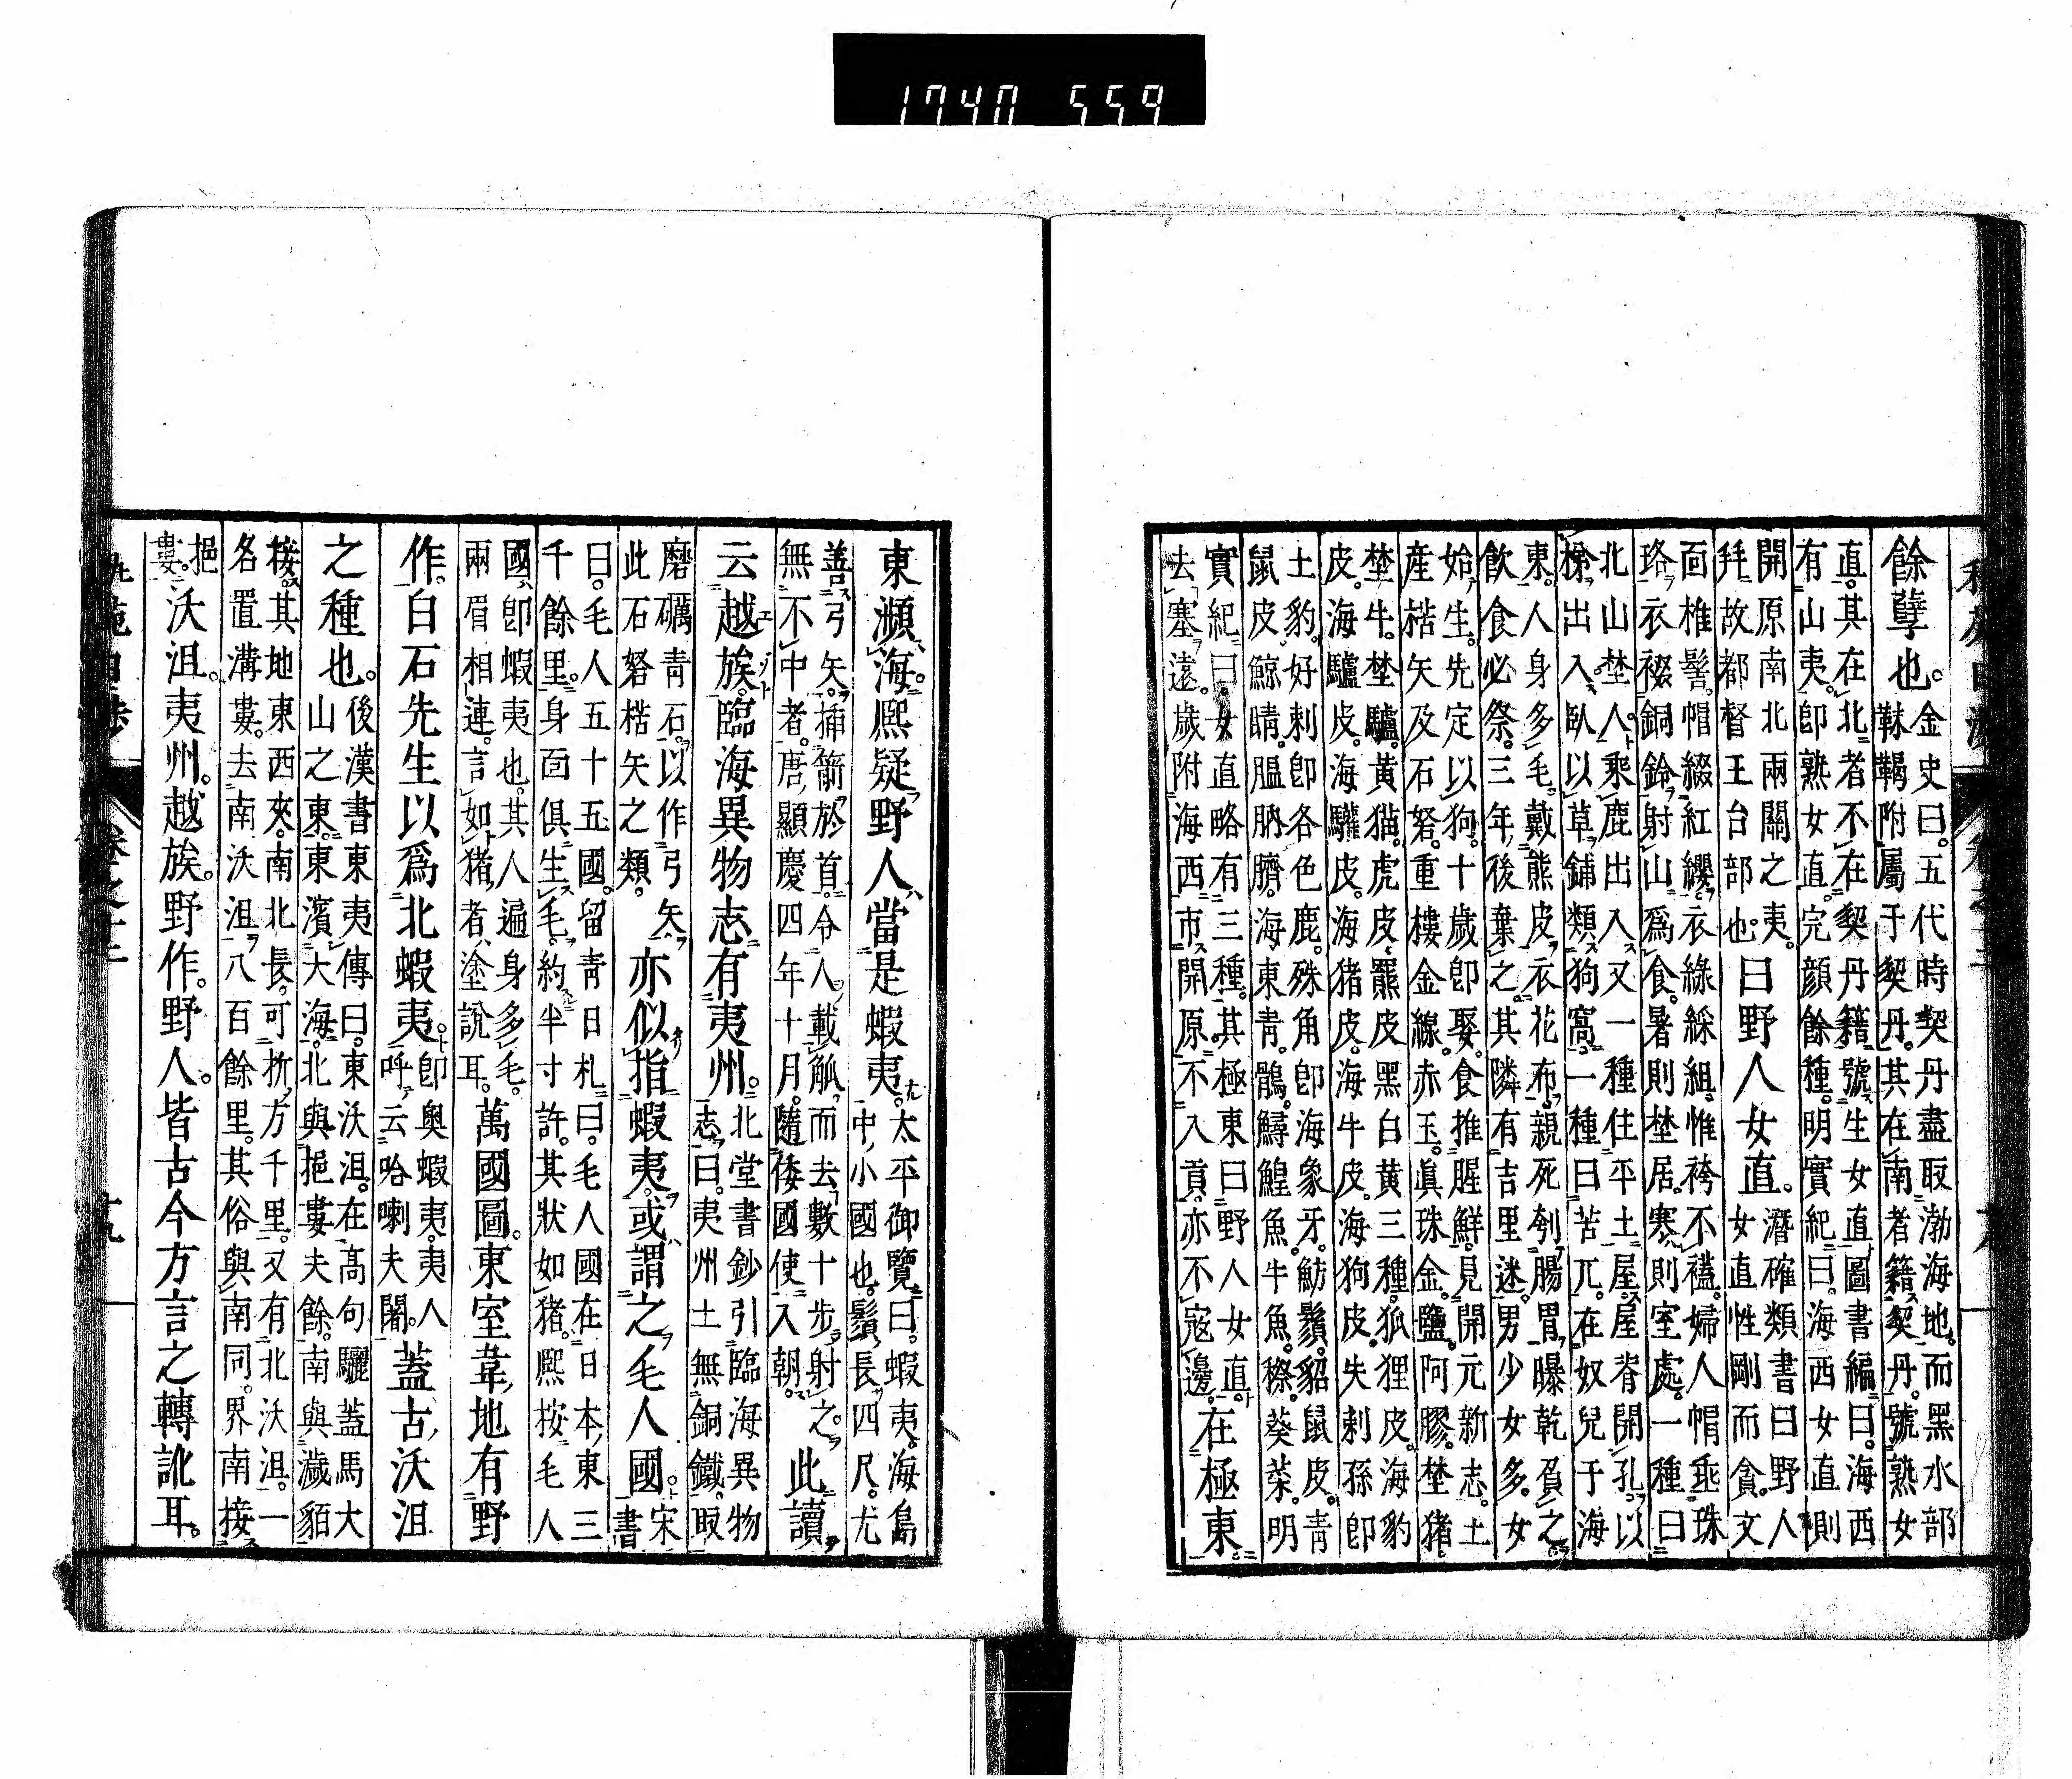 1740 559
餘孽也。金史曰。五代時契丹盡取渤海地。而黑水部
靺鞨附屬于契丹。其在南者籍契丹。號熟女
直。其在北者不在契丹籍。號生女直。圖書編曰。海西
有山夷。卽熟女直。完顏餘種。明實紀曰。海西女直則
開原南北兩關之夷。
拜故都督王台部也。曰野人女直。潛確類書曰。野人
女直性剛而貪。文
面椎髻。帽綴紅纓。衣綠綵組。惟袴不襠。婦人帽垂珠
珞。衣綴銅鈴。射山爲食。暑則埜居。寒則室處。一種曰
北山埜人。乘鹿出入。又一種住平土屋。屋脊開孔。以
梯出入。臥以草鋪。類狗窩。一種曰苦兀。在奴兒于海
東。人身多毛。戴熊皮。衣花布。親死刳腸胃。曝乾負之。
飲食必祭。三年後葉之。其隣有吉里迷。男少女多。女
始生。先定以狗。十歲卽娶。食推腥鮮。見開元新志。土
產楛矢及石砮。重樓金線。赤玉。眞珠金。鹽。阿膠。埜猪。
埜牛。埜驢。黃猫。虎皮。羆皮。黑白黃三種。狐狸皮。海豹
皮。海驢皮。海驩皮。海猪皮。海牛皮。海狗皮。失剌孫卽
土豹。好剌卽各色鹿。殊角卽海象牙。魴鬚。貂鼠皮。青
鼠皮。鯨睛。膃肭臍。海東青。鶻。鱘鰉魚。牛魚。穄。葵菜。明
實紀曰。女直略有三種。其極東曰野人女直。
去塞遠。歲附海西市開原。不入貢。亦不寇邊。在極東。
東瀕海。熙疑野人當是蝦夷。太平御覽曰。蝦夷。海島
中小國也。鬚長四尺。尤
善弓矢。插箭於首。令人載瓠而去數十步射之。
無不中者。唐顯慶四年十月。隨倭國使入朝。此讀
云越族。臨海異物志有夷州。北堂書鈔引臨海異物
志曰。夷州土無銅鐵。取
磨礪青石。以作弓矢。
此石砮楛矢之類。亦似指蝦夷。或謂之毛人國。宋
書
曰。毛人五十五國。留青日札曰。毛人國在日本東三
千餘里。身面俱生毛。約半寸許。其狀如猪。熙按毛人
國卽蝦夷也。其人遍身多毛。
兩眉相連。言如猪者。塗說耳。萬國圖。東室韋地有野
作。白石先生以爲北蝦夷。卽奥蝦夷。夷人
呼云哈喇夫闍。蓋古沃沮
之種也。後漢書東夷傳曰。東沃沮。在高句驪蓋馬大
山之東。東濱大海。北與挹婁夫餘。南與濊貊
接。其地東西夾。南北長。可折方千里。又有北沃沮。一
名置溝婁。去南沃沮八百餘里。其俗與南同。界南接
挹
婁。沃沮。夷州。越族。野作。野人。皆古今方言之轉訛耳。